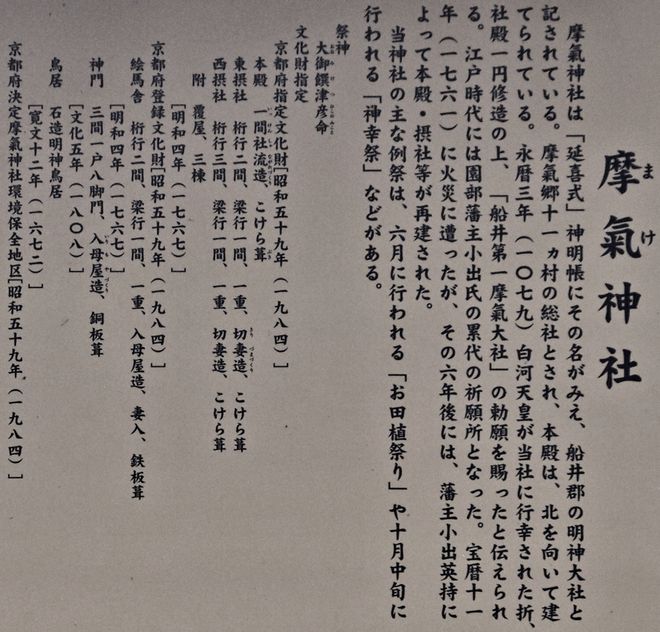 摩氣神社
まけ
摩氣神社は「延喜式」神明帳にその名がみえ、船井郡の明神大社と
記されている。摩氣郷十一ヵ村の総社とされ、本殿は、北を向いて建
てられている。永暦三年（一〇七九）白河天皇が当社に行幸された折、
社殿一円修造の上、「船井第一摩氣大社」の勅願を賜ったと伝えられ
る。江戸時代には園部藩主小出氏の累代の祈願所となった。宝暦十一
年（一七六一）に火災に遭ったが、その六年後には、藩主小出英持に
よって本殿・摂社等が再建された。
当神社の主な例祭は、六月に行われる「お田植祭り」や十月中旬に
行われる「神幸祭」などがある。
祭神
大御饌津彦命
おおみけつひこみこと
文化財指定
京都府指定文化財［昭和五十九年（一九八四）］
本殿　一間社流造、こけら葺
東摂社　桁行二間、梁行一間、一重、切妻造、こけら葺
西摂社　桁行三間、梁行一間、一重、切妻造、こけら葺
附　覆屋、三棟
［明和四年（一七六七）］
京都府登録文化財［昭和五十九年（一九八四）］
絵馬舎　桁行二間、梁行一間、一重、入母屋造、妻入、鉄板葺
［明和四年（一七六七）］
神門　三間一戸八脚門、入母屋造、銅板葺
［文化五年（一八〇八）］
鳥居　石造明神鳥居
［寛文十二年（一六七二）］
京都府決定摩氣神社環境保全地区［昭和五十九年（一九八四）］